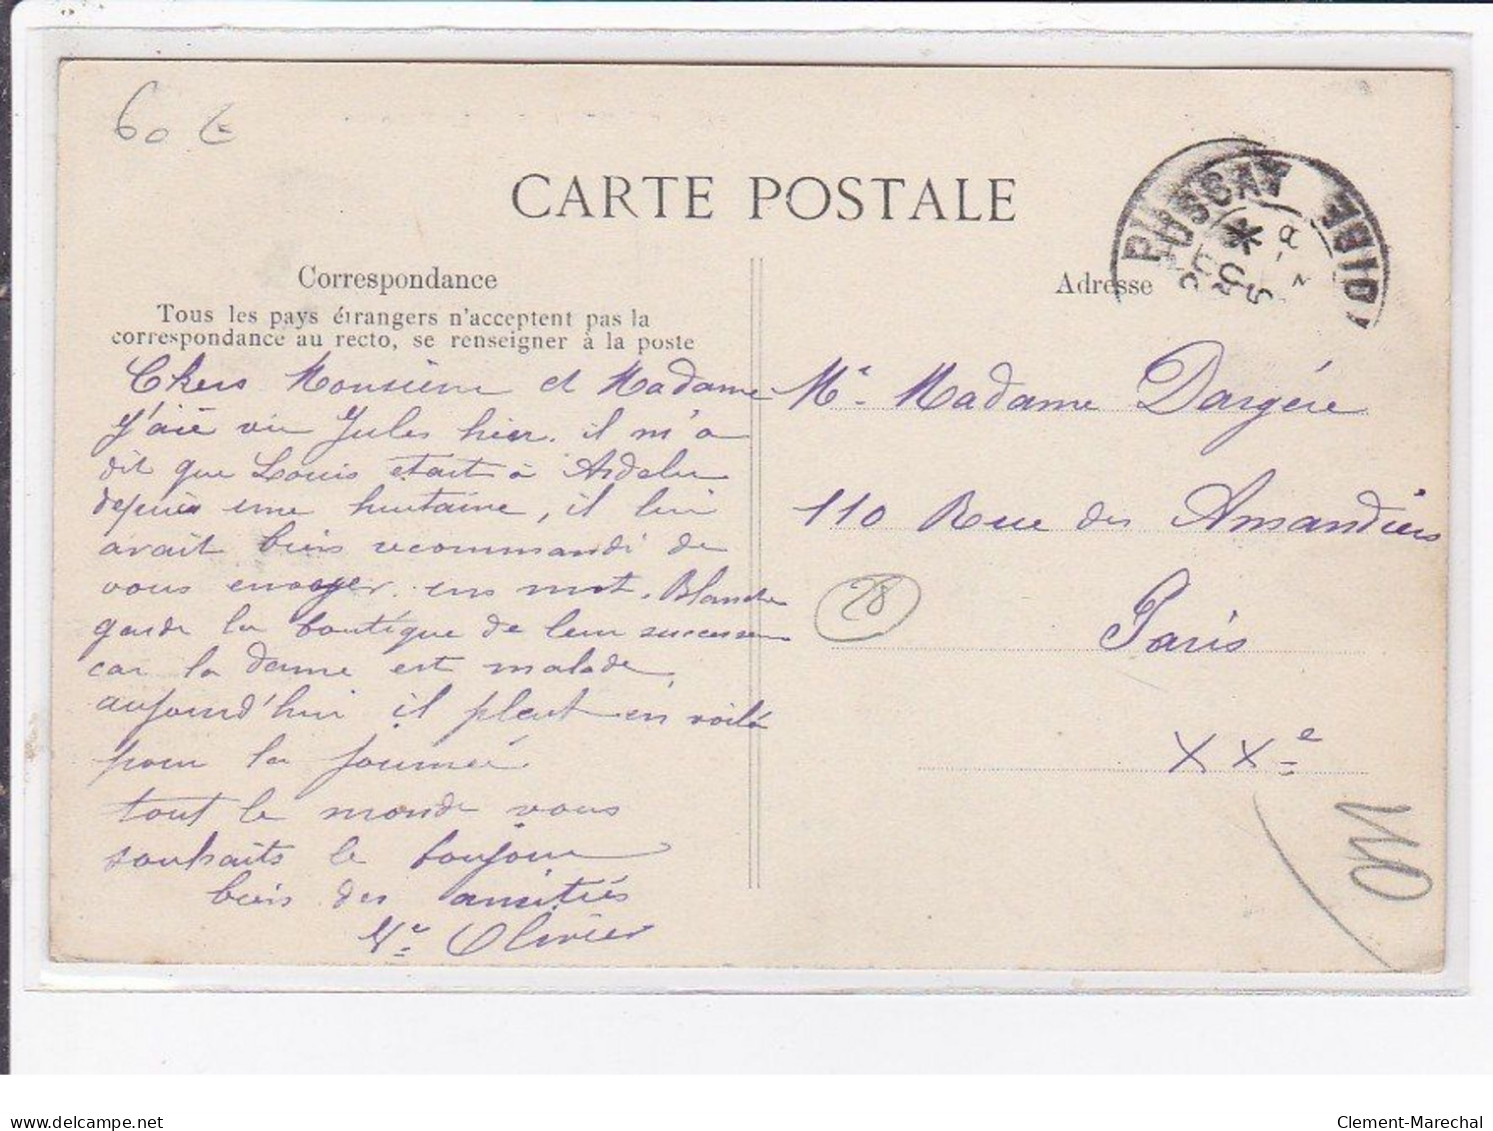 60 €
CARTE POSTALE
Correspondance
Tous les pays étrangers n'acceptent pas la
correspondance au recto, se renseigner à la poste
Adresse
Chers Monsieur et Madame
J'aie vu Jules hier. il m'a
dit que Louis etait à Ardelu
depuis une huitaine, il lui
avait bien recommandé de
vous envoyer un mot. Blanche
garde la boutique de leur successeur
car la dame est malade,
aujourd'hui il pleut en voilà
pour la journée
tout le monde vous
souhaits le bonjour
bien des amitiés
Ve Olivier
Mr. Madame Dargére
110 Rue des Amandiers
Paris
XXe
28
PUSSAY
OISE
Clement-Marechal
delcampe.net